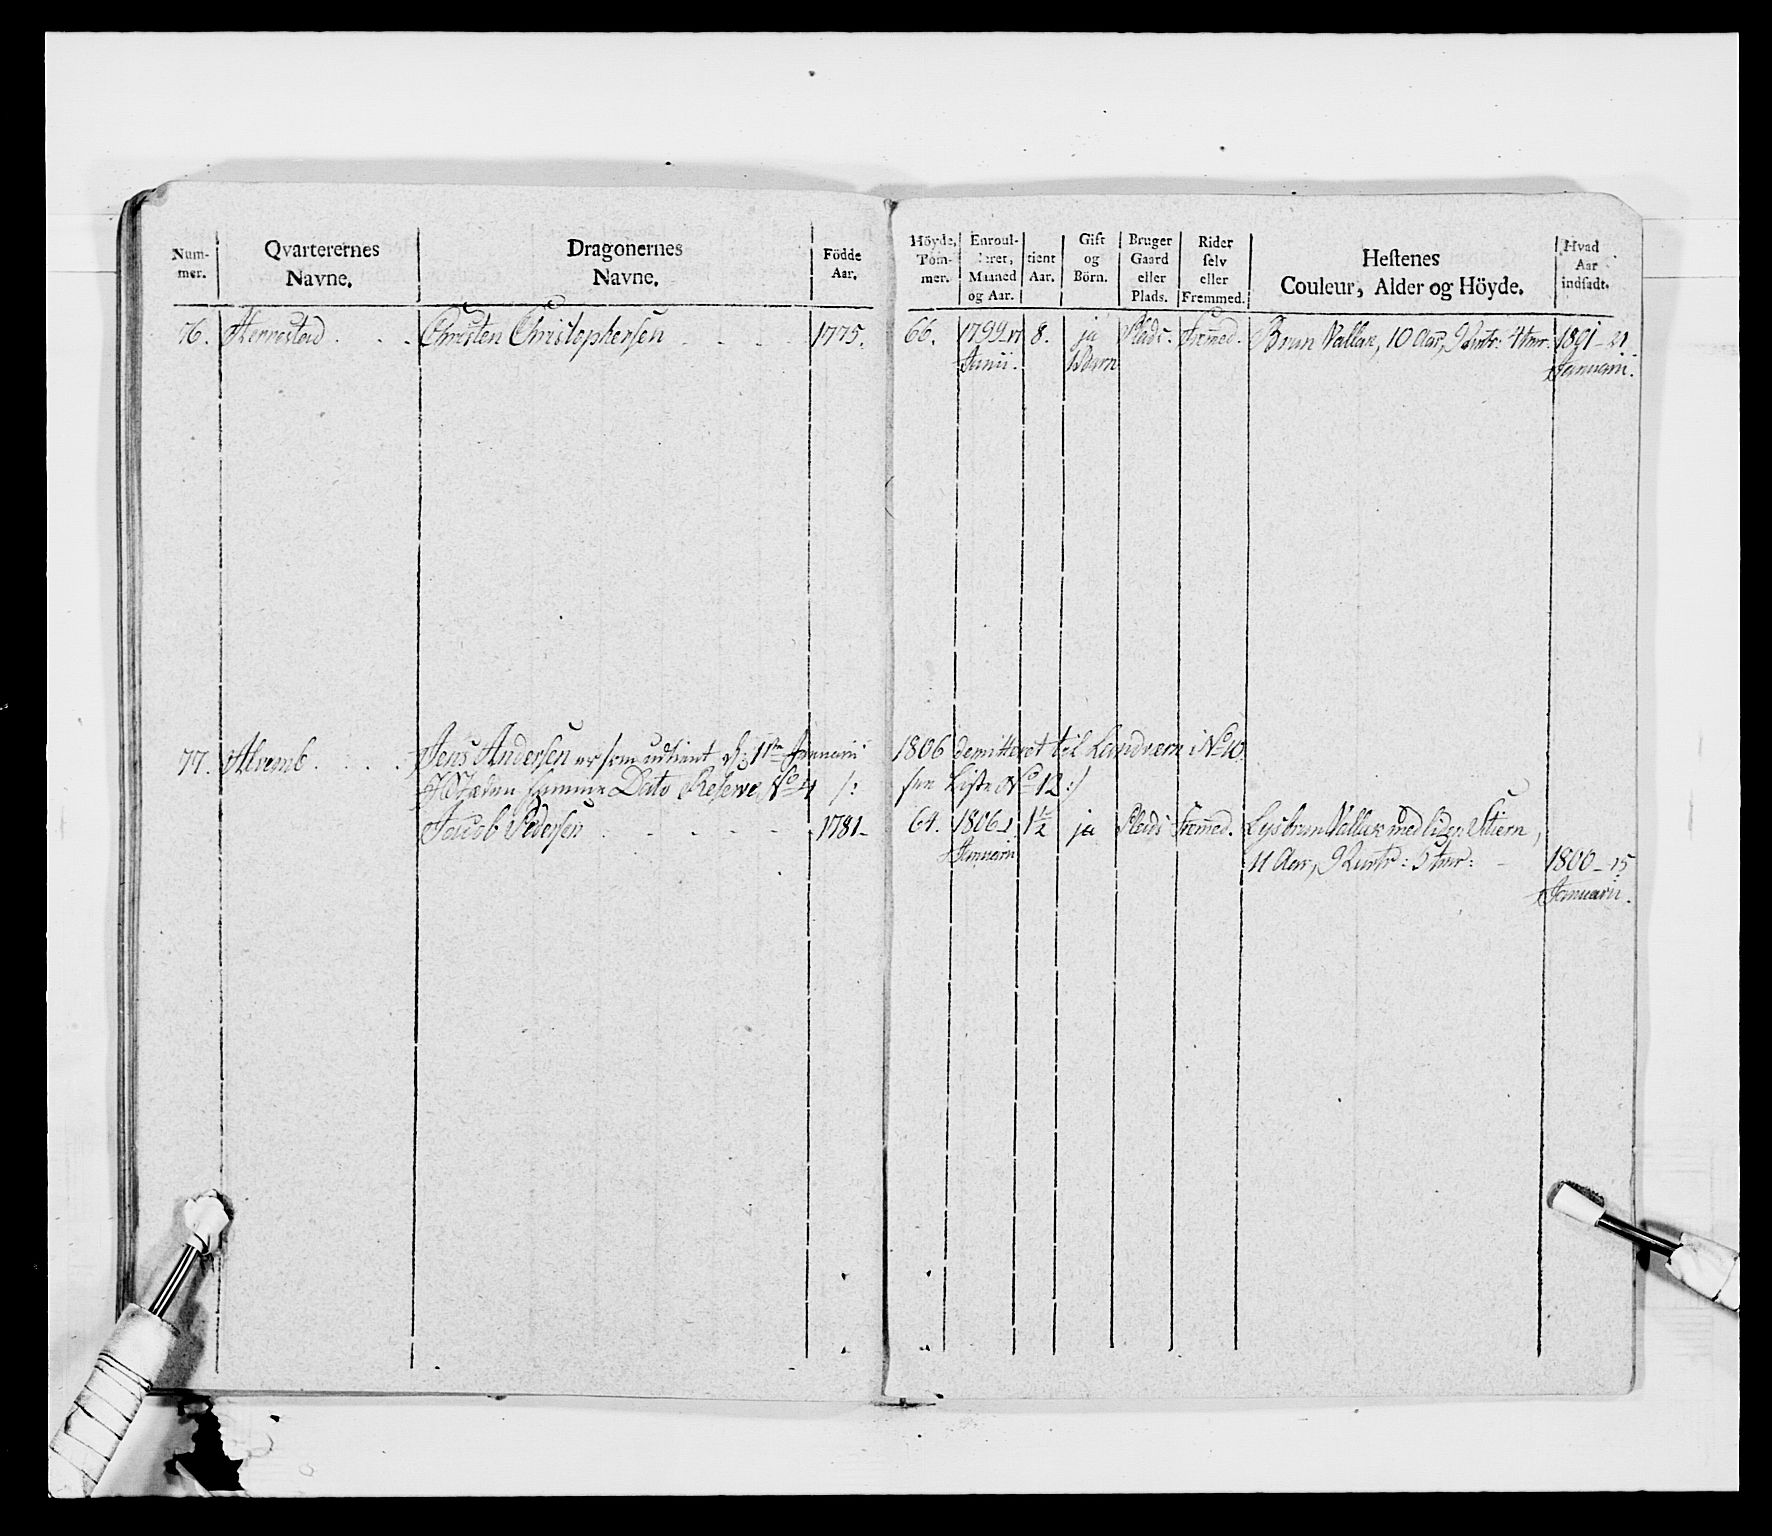 Num-
mer.
Qvarterernes
Navne.
Dragonernes
Navne.
Födde
Aar.
Höyde,
Tom-
mer.
Enroul-
leret,
Maaned
og Aar.
tient
Aar.
Gift
og
Börn.
Bruger
Gaard
eller
Plads.
Rider
selv
eller
Fremmed.
Hestenes
Couleur, Alder og Höyde.
Hvad
Aar
indsadt.
76. Herrestad . . . Christen Christophersen . . . . 1775. 66. 1799 17 8. ja Plads. Fremed. Brun Vallak, 10 Aar, 9 Qvartr: 4 tmr. 1801 - 21
Junii. 1 Barn Januarii.
77. Jens Andersen er som udtient d: 1ste Januarii 1806 demitteret til Landværn No 10.
I Stæden samme Dato Reserve No 4 /: see Liste No 12 :/
Jacob Pedersen . - - - - 1781 - 64. 1806 1. 1 1/2 ja Plads Fremed. Lysbrun Vallak med liden Stiern,
Januarii 11 Aar, 9 Qvartr: 5 tmr: - 1800 - 15
Januarii.